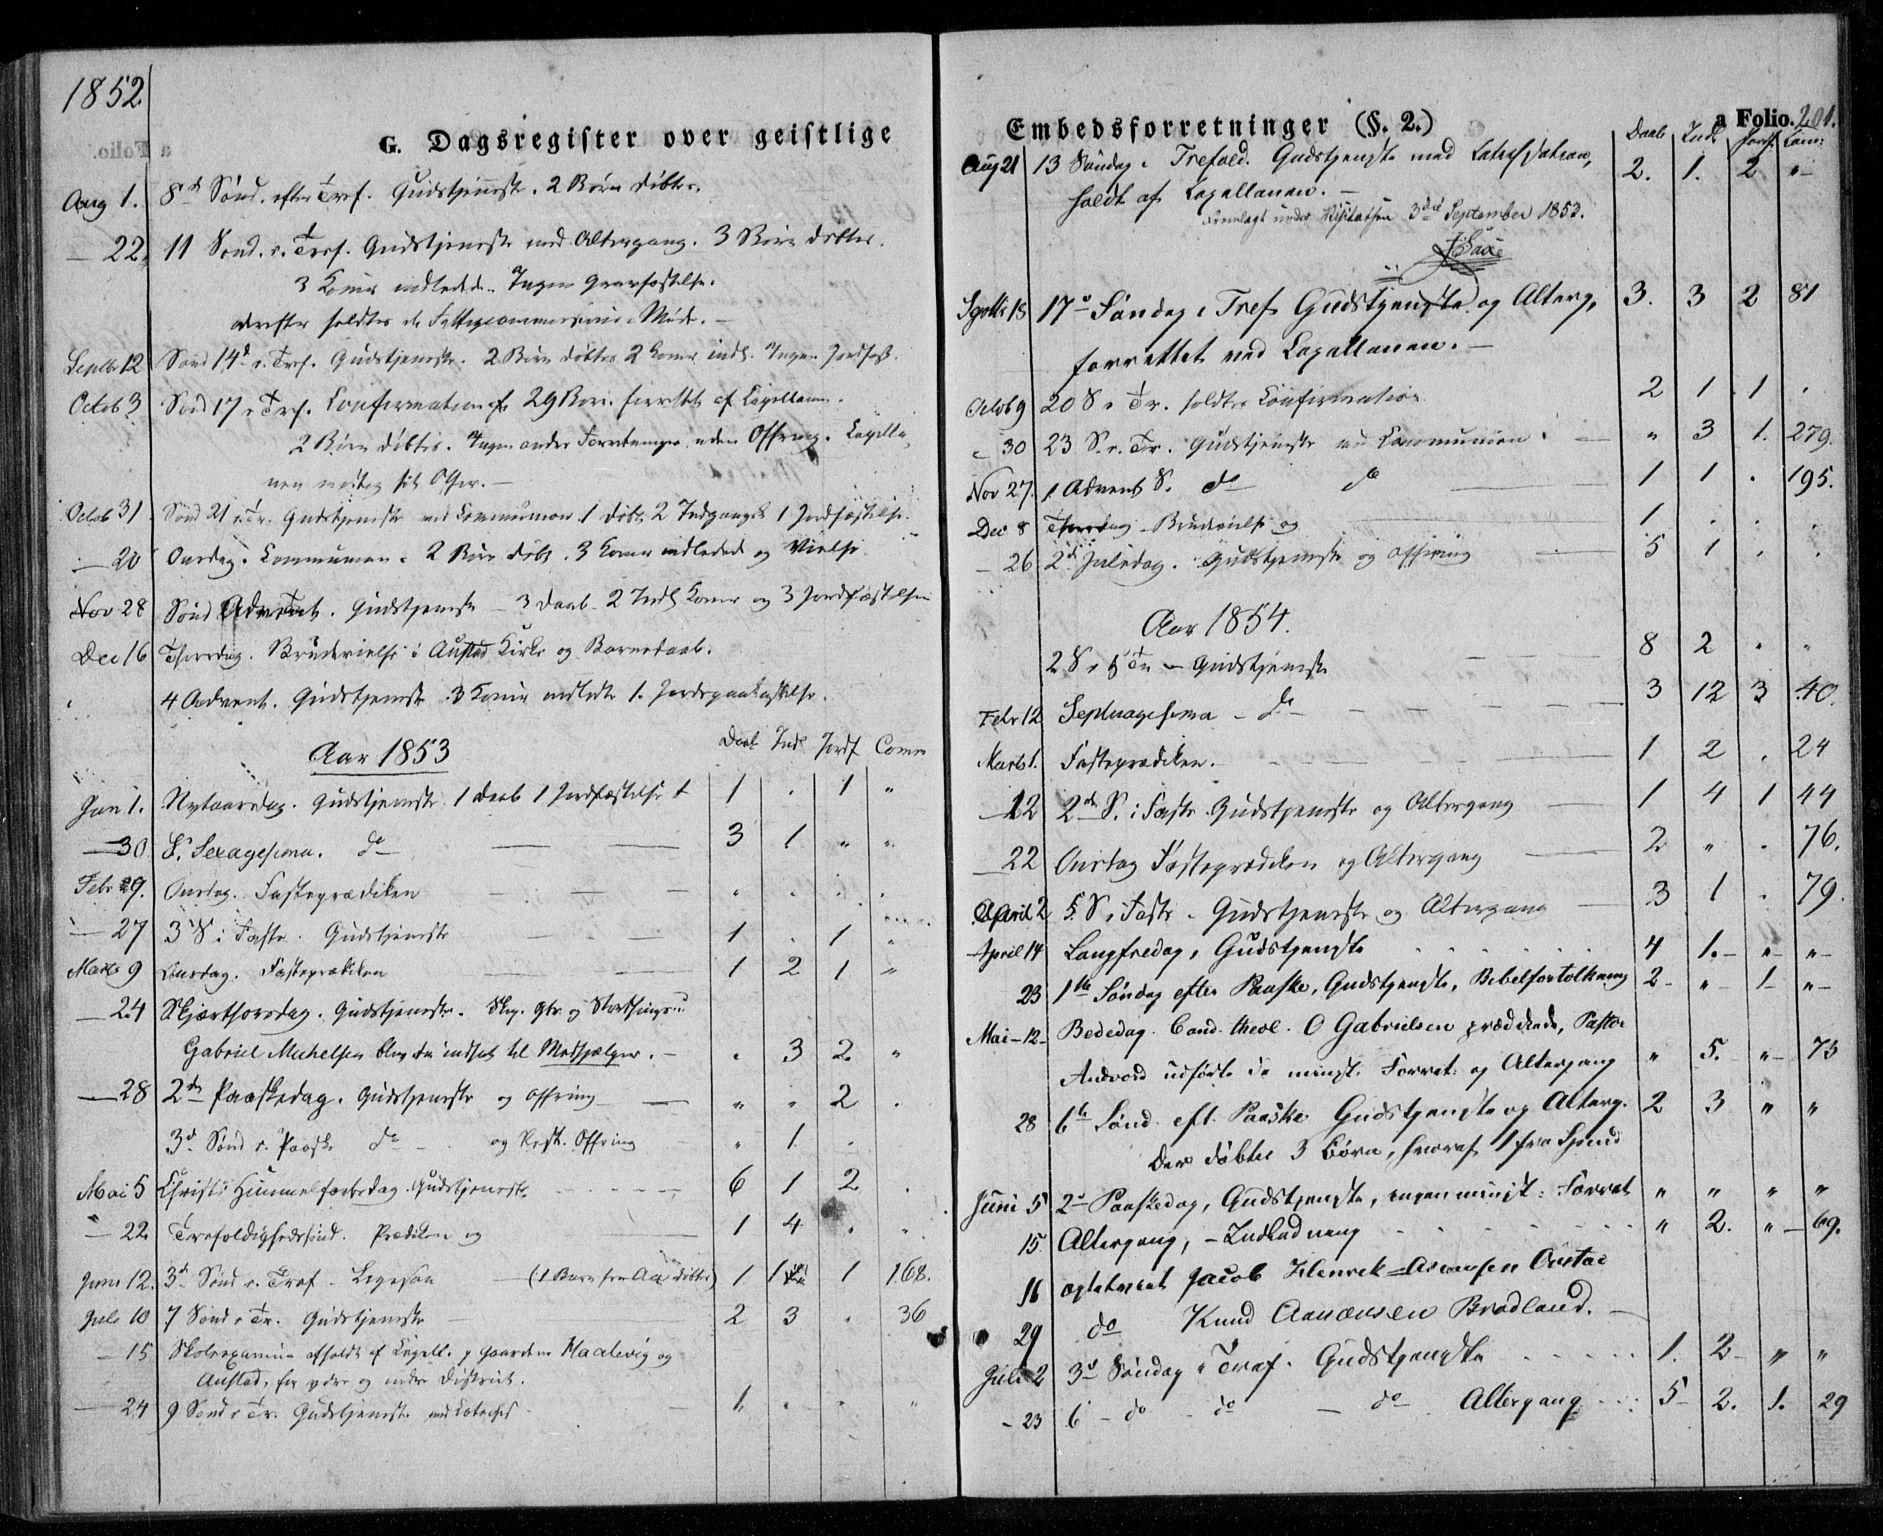 1852
G. Dagsregister over geistlige
Aug 1. 8de Sønd. efter Tref. Gudstjeneste. 2 Børn døbte.
— 22. 11 Sønd. e. Tref. Gudstjeneste med Altergang. 3 Børn døbtes.
3 Koner indledede. Ingen Gravfæstelse.
derefter holdtes de Fattigcommissions-Møde. —
Septbr 12 Sønd 14de e. Tref. Gudstjeneste. 2 Børn døbtes 2 Koner indl. Ingen Jordfæst.
Octob 3 Sønd 17 e. Tref. Confirmation af 29 Børn. forrettet af Capellanen.
2 Børn døbtes. Ingen andre Forretninger uden Offring. Capella-
nen modtog sit Offer. —
Octob 31 Sønd 21 e. Tr. Gudstjeneste med Communion 1 døbt 2 Indgangsk 1 Jordfæstelse.
— 20 Onsdag. Communion. 2 Børn døbt. 3 Koner indledede og Vielse.
Nov 28 Sønd Advent. Gudstjeneste — 3 Daab 2 Indl Koner og 3 Jordfæstelser
Dec 16 Thorsdag. Brudevielse i Austad Kirke og Barnedaab.
4 Advent. Gudstjeneste 3 Koner indledte 1 Jordspaakastelse.
Aar 1853 Daab Indl Jordf Comm
Jan 1. Nytaarsdag. Gudstjeneste 1 Daab 1 Jordfæstelse 1 . 1 "
— 30 S. Sexagesima. do — — 3 1 " "
Febr 9. Onsdag. Fasteprædiken — — — . . . .
— 27 3 S i Faste. Gudstjeneste — — 1 . 1 "
Marts 9 Onsdag. Fasteprædiken — — 1 2 1 "
— 24 Skjærthorsdag. Gudstjeneste. Skg. Gbr. og Storthingsm.
Gabriel Michelsen blev da indsat til Medhjælper. — . 3 2. "
— 28 2den Paaskedag. Gudstjeneste og Offring — " " 2 .
3d Sønd e. Paaske do — og Rest. Offring " 1 .
Mai 5 Christi Himmelfartsdag. Gudstjeneste 6 1 2 .
— 22 Trefoldighedssønd. Prædiken og 1 4 . "
Juni 12. 3d Sønd e. Tref — (1 Barn fra Aa døbtes) 1 1 1 168.
Juli 10 7 Sønd e Tr. Gudstjeneste 2 3 . 36
— 15 Skoleexamina afholdt af Capell. p Gaardene Haalevig og
Austad, for ydre og indre District.
— 24 9 Sønd e Tr. Gudstjeneste med Cateches 1. . . "
Embedsforretninger (§. 2.)
a Folio. 201.
Daab Indl Jordf Com:
Aug 21 13 Søndag e Trefold. Gudstjeneste med Catechisation, 2. 1. 2 "-
holdt af Capellanen. —
Fremlagt under Visitatsen 3die September 1853.
Septbr 18 17de Søndag e Tref. Gudstjeneste og Alterg. 3. 3 2 81
forrettet ved Capellanen. —
Octob 9 20 S e Tr. holdtes Confirmation 2 1 1 .
- 30 23 S. e. Tr. Gudstjeneste med Communion. — " 3 1. 279.
Nov 27. 1 Advent S. do do — 1 1 . 195.
Dec 8 Thorsdag Brudevielse og — 1 . . .
— 26 2d Juledag. Gudstjeneste og Offring — 5 1 . .
Aar 1854.
2 S e H Tr — Gudstjeneste — — 8 2 . "
Febr 12 Septuagesima — do — — — 3 12 3 40.
Marts 1. Fasteprædiken. — — — 1 2 . 24
— 12 2de S. i Faste Gudstjeneste og Altergang — 1 4 1 44
— 22 Onsdag Fasteprædiken og Altergang — 2 " . 76.
April 2 5 S i Faste. Gudstjeneste og Altergang — 3 1 . 79.
April 14 Langfredag, Gudstjeneste . . . . 4 1.- "- "-
23 1ste Søndag efter Paaske, Gudstjeneste, Bibelfortolkning 2- "- 1- "-
Mai -12- Bededag. Cand. theol. O Gabrielsen prædikede, Pastor
Andvord udførte de minist. Forret: og Altergang " 5. "- 73
28 6te Sønd. eft. Paaske Gudstjeneste og Alterg. 2 3 " "
Der døbtes 3 Børn, hvoraf 1 fra
Juni 5 2den Paaskedag, Gudstjeneste, ingen minist: Forret " " " "
15 Altergang, - Indledning " 2. "- 69.
16 Jacob Henrik Austad
29 do Knud Aanensen Brådland. —
Juli 2 3d Søndag e Tref. Gudstjeneste . . . . 1. 2- " "
- 23 6 - do - do — do Altergang . . . 5- 2. 1. 29